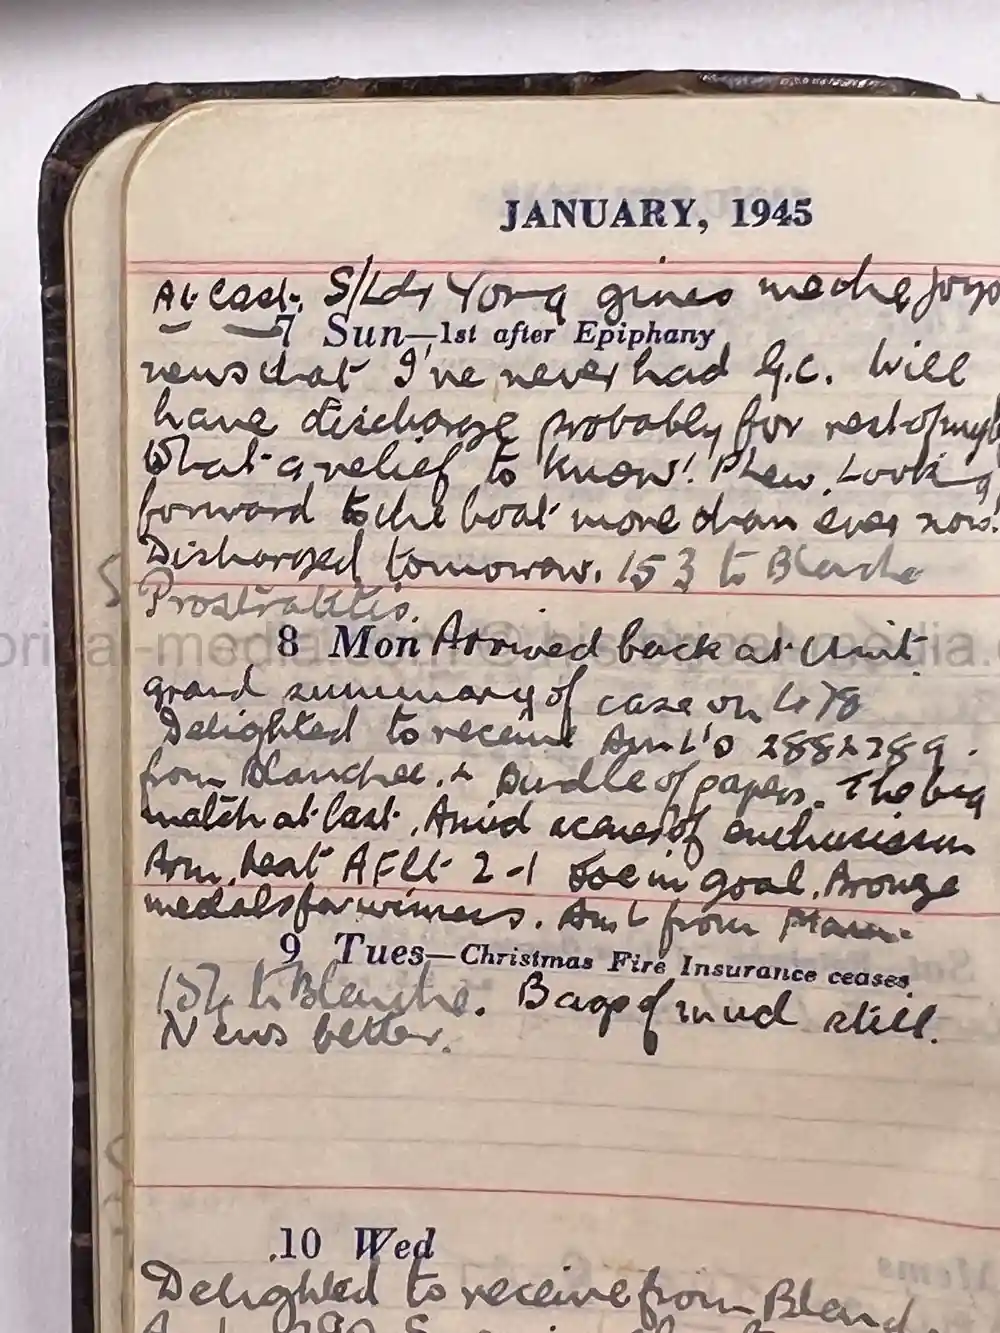 JANUARY, 1945
At last. S/Ldr Young gives me the joyo
7 Sun—1st after Epiphany
news that I've never had G.C. Will
have discharge probably for rest of my
What a relief to know! Phew. Looking
forward to the boat more than ever now!
Discharged tomorrow. 153 to Blanche
Prostratitis.
8 Mon Arrived back at Unit
grand summary of case on
Delighted to receive AmL's 288 & 289.
from Blanche, & bundle of papers. The big
match at last. Amid scenes of enthusiasm
Arm. beat AFlt 2-1 in goal. Bronze
medals for winners. AmL from
9 Tues—Christmas Fire Insurance ceases
154 to Blanche. Bags of mud still.
News better.
10 Wed
Delighted to receive from Blanc
290